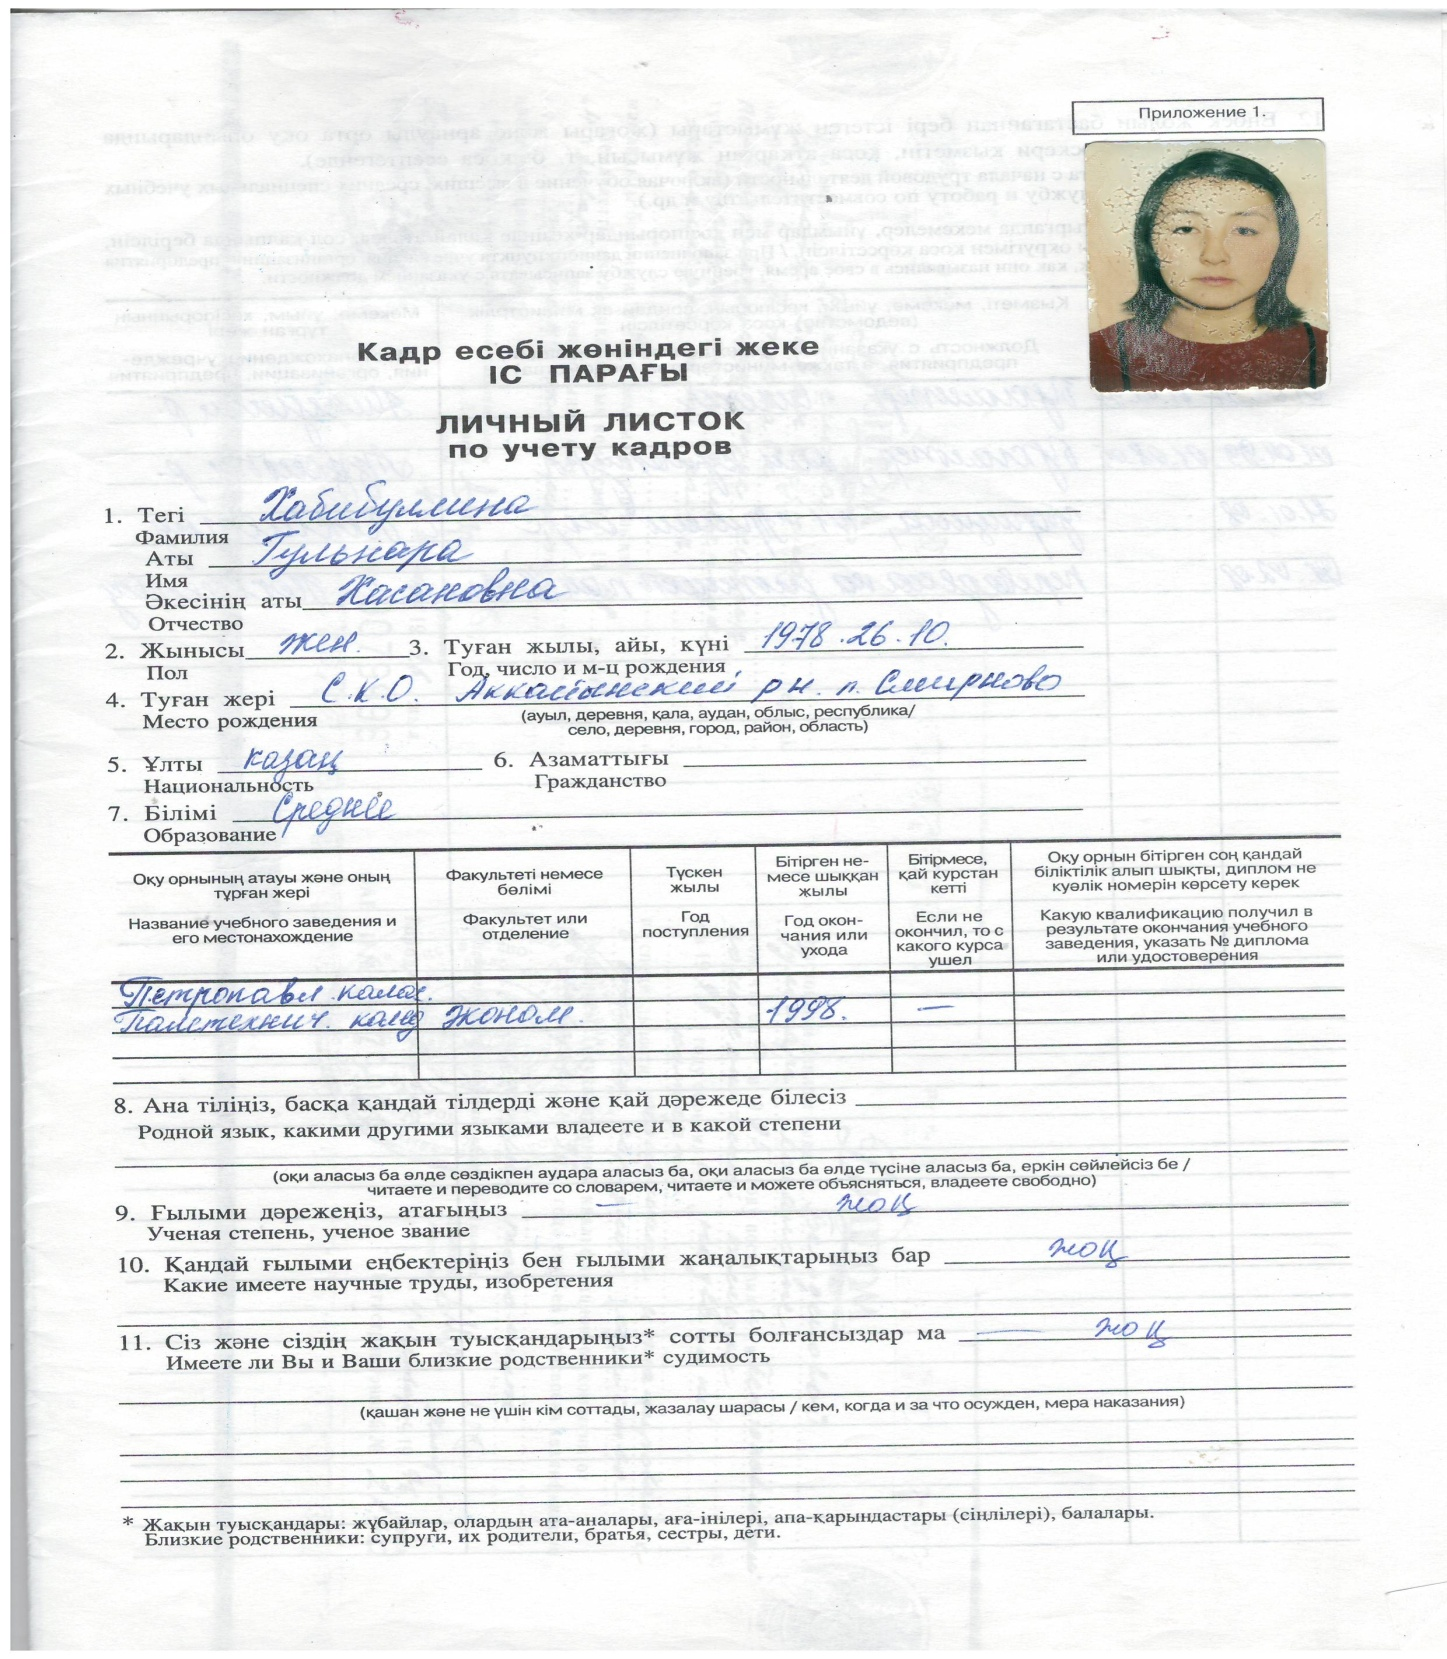 Приложение 1.
Кадр есебі жөніндегі жеке
ІС ПАРАҒЫ
ЛИЧНЫЙ ЛИСТОК
по учету кадров
1. Тегі Хабибуллина
Фамилия
Аты Гульнара
Имя
Әкесінің аты Хасановна
Отчество
2. Жынысы жен. 3. Туған жылы, айы, күні 1978.26.10.
Пол Год, число и м-ц рождения
4. Туған жері С.К.О. Аккайынский рн. п. Смирново
Место рождения (ауыл, деревня, қала, аудан, облыс, республика/
село, деревня, город, район, область)
5. Ұлты казақ 6. Азаматтығы
Национальность Гражданство
7. Білімі Среднее
Образование
Оқу орнының атауы және оның тұрған жері
Название учебного заведения и его местонахождение
Факультеті немесе бөлімі
Факультет или отделение
Түскен жылы
Год поступления
Бітірген немесе шыққан жылы
Год окончания или ухода
Бітірмесе, қай курстан кетті
Если не окончил, то с какого курса ушел
Оқу орнын бітірген соң қандай біліктілік алып шықты, диплом не куәлік номерін көрсету керек
Какую квалификацию получил в результате окончания учебного заведения, указать № диплома или удостоверения
Петропавл
эконом. 1998. —
8. Ана тіліңіз, басқа қандай тілдерді және қай дәрежеде білесіз
Родной язык, какими другими языками владеете и в какой степени
(оқи аласыз ба әлде сөздікпен аудара аласыз ба, оқи аласыз ба әлде түсіне аласыз ба, еркін сөйлейсіз бе /
читаете и переводите со словарем, читаете и можете объясняться, владеете свободно)
9. Ғылыми дәрежеңіз, атағыңыз — жоқ
Ученая степень, ученое звание
10. Қандай ғылыми еңбектеріңіз бен ғылыми жаңалықтарыңыз бар жоқ
Какие имеете научные труды, изобретения
11. Сіз және сіздің жақын туысқандарыңыз* сотты болғансыздар ма — жоқ
Имеете ли Вы и Ваши близкие родственники* судимость
(қашан және не үшін кім соттады, жазалау шарасы / кем, когда и за что осужден, мера наказания)
* Жақын туысқандары: жұбайлар, олардың ата-аналары, аға-інілері, апа-қарындастары (сіңлілері), балалары.
Близкие родственники: супруги, их родители, братья, сестры, дети.